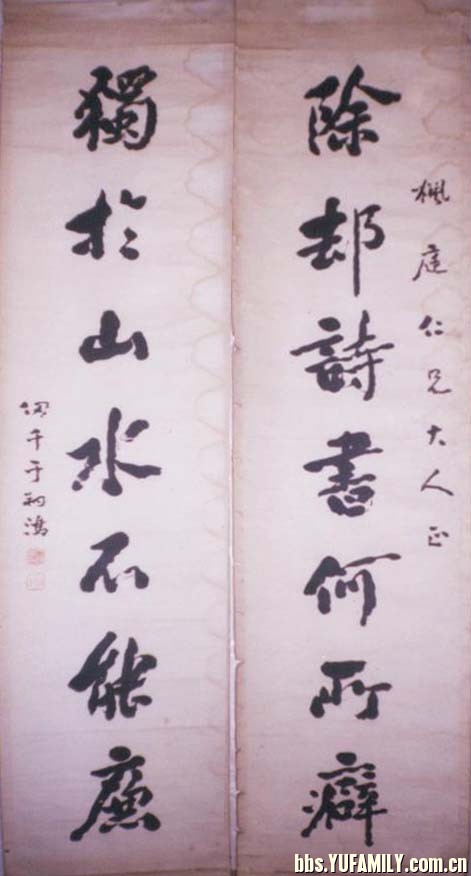 楓庭仁兄大人正
除却詩書何所癖
獨於山水不能廉
千于
bbs.YUFAMILY.com.cn